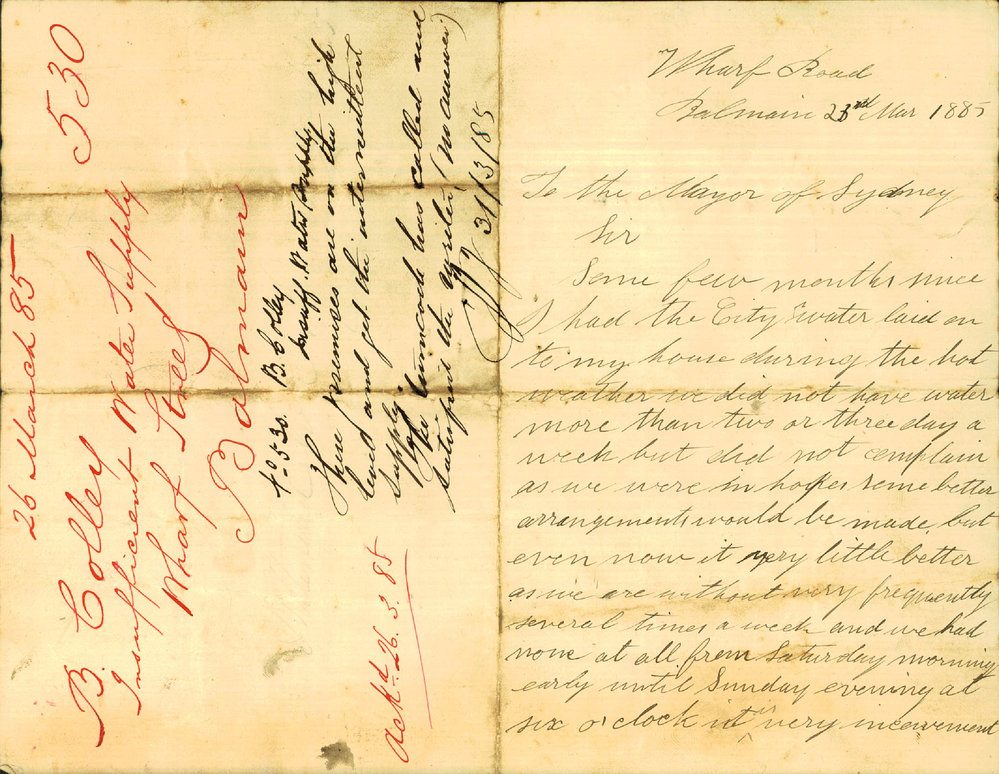 530
26 March 85
B. Colley
Insufficient Water Supply
Wharf Street
Balmain
Ackd 26.3.85
530. B. Colley
Insuff. Water Supply
These premises are on the high
level and get the intermittent
supply
The turncock has called and
the writer (no answer)
31/3/85
Wharf Road
Balmain 23rd Mar 1885
To the Mayor of Sydney
Sir
Some few months since
I had the City water laid on
to my house during the hot
weather we did not have water
more than two or three day a
week but did not complain
as we were in hopes some better
arrangements would be made but
even now it very little better
as we are without very frequently
several times a week and we had
none at all from Saturday morning
early until Sunday evening at
six o'clock it very inconvenient